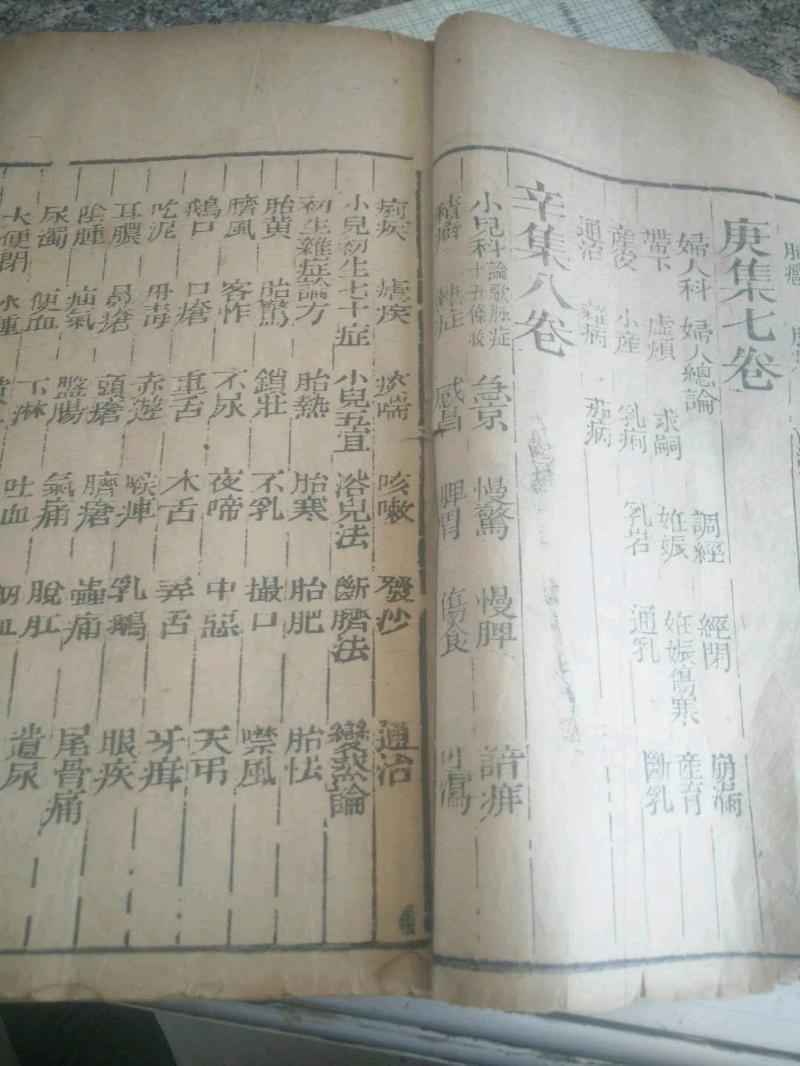 庚集七卷
婦人科 婦人總論 調經 經閉 崩漏
帶下 虛煩 求嗣 妊娠 妊娠傷寒 產育
產後 小產 乳病 乳岩 通乳 斷乳
通治 雜病 茄病
辛集八卷
小兒科 急京 慢驚 慢脾 諸疳
積癖 感冒 脾胃 傷食 吐瀉
痢疾 瘧疾 痰喘 咳嗽 發沙 通治
小兒初生七十症 小兒五宜 浴兒法 斷臍法 變蒸論
初生雜症論方 胎熱 胎寒 胎肥 胎怯
胎黃 胎驚 鎖壯 不乳 撮口 噤風
臍風 客忤 不尿 夜啼 中惡 天弔
鵝口 口瘡 重舌 木舌 弄舌 牙疳
吃泥 丹毒 赤遊 喉痺 乳鵝 眼疾
耳膿 鼻瘡 頭瘡 臍瘡 蟲痛 尾骨痛
陰腫 疝氣 盤腸 氣痛 脫肛 遺尿
尿濁 便血 下淋 吐血
大便閉 水腫